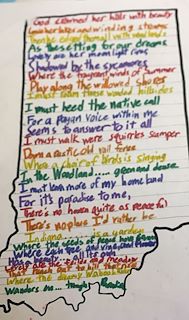 God crowned her hills with beauty
Gave her lakes and winding streams
Then he edged them all with woodlands
As the setting for our dreams
Lovely are her moonlight rivers
Shadowed by the sycamores
Where the fragrant winds of summer
Play along the willowed shores
I must roam those wooded hillsides
I must heed the native call
For a Pagan voice within me
Seems to answer to it all
I must walk where squirrels scamper
Down a rustic old rail fence
Where a choir of birds is singing
In the Woodland ..... green and dense
I must learn more of my home land
For it's paradise to me,
There's no haven quite as peaceful
There's no place I'd rather be
Indiana ..... is a garden
Where the seeds of peace have grown
Where each tree, and vine, and flower
Has a beauty ... all its own
Lakes are its fields and meadows
That reach out to hills that rise
Where the dreamy Wabash River
Wanders on... through Paradise